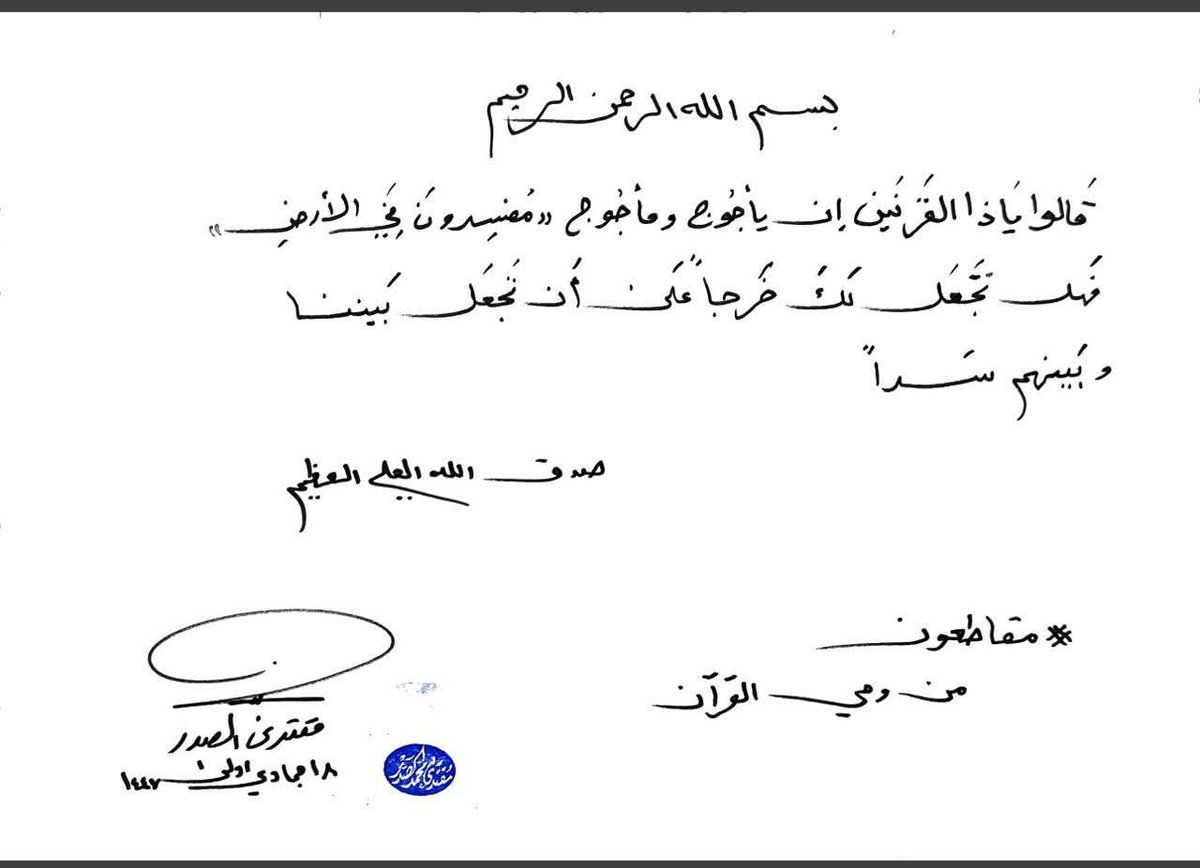 بسم الله الرحمن الرحيم
قَالوا يَاذا القَرنَين إن يأجُوج ومأجُوج «مُفسِدونَ فِي الأرضِ»
فَهل نَجَعَل لَكَ خَرجاً عَلى أَن تَجعَل بَيننا
وبَينهم سَداً
صدق الله العلي العظيم
* مقاطعون
من وحي القرآن
مقتدى الصدر
١٨ جمادي اولى ١٤٤٧